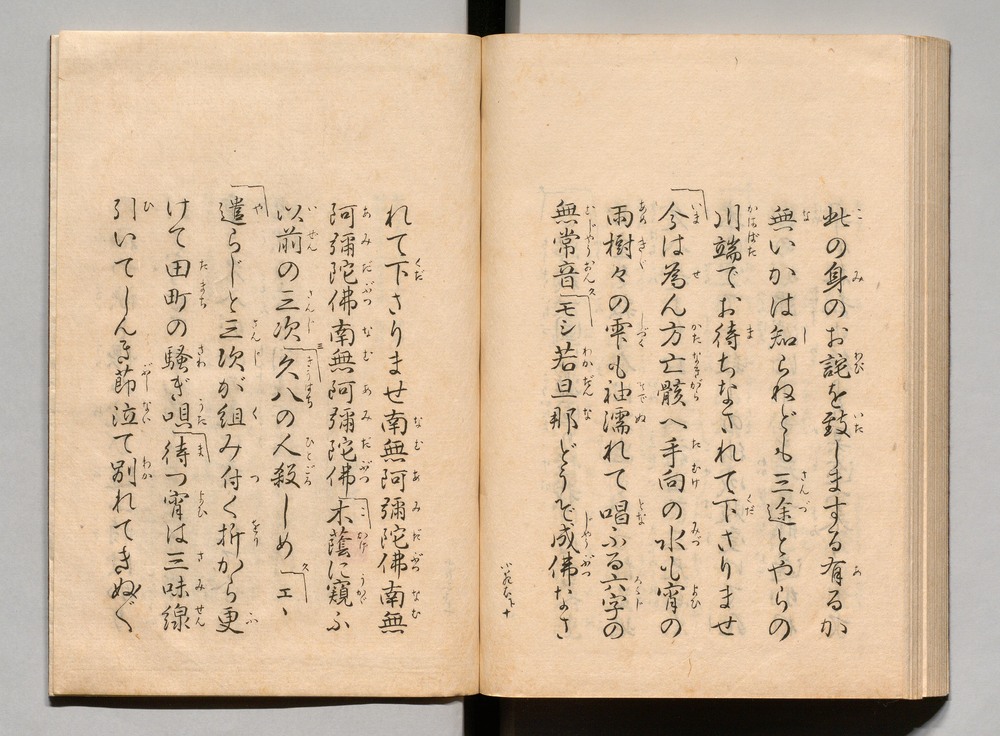 此の身のお詫を致しまする有るか
無いかは知らねども三途とやらの
川端でお待ちなされて下さりませ
今は為ん方亡骸へ手向の水も宵の
雨樹々の雫も袖濡れて唱ふる六字の
無常音モシ若旦那どうぞ成佛なさ
れて下さりませ南無阿彌陀佛南無
阿彌陀佛南無阿彌陀佛木蔭に窺ふ
以前の三次久八の人殺しめエヽ
遣らじと三次が組み付く折から更
けて田町の騒ぎ唄待つ宵は三味線
引いてしんき節泣て別れてきぬ〴〵